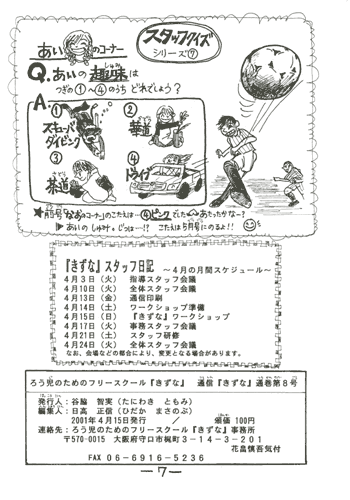 あいのコーナー
スタッフクイズ
シリーズ⑦
Q.あいの趣味は
しゅみ
つぎの①〜④のうち どれでしょう?
A.
①
スキューバ
ダイビング
②
華道
③
さどう
茶道
④
ドライブ
★月号「なおのコーナー」のこたえは…④ピンクでした。あたったかなー?
あいの しゅみ。じつは…!? こたえは5月号にのるよ!!
『きずな』スタッフ日記 ～4月の月間スケジュール～
4月3日(火) 指導スタッフ会議
4月10日(火) 全体スタッフ会議
4月13日(金) 通信印刷
4月14日(土) ワークショップ準備
4月15日(日) 『きずな』ワークショップ
4月17日(火) 事務スタッフ会議
4月21日(土) スタッフ研修
4月24日(火) 全体スタッフ会議
なお、会場などの都合により、変更となる場合があります。
ろう児のためのフリースクール『きずな』 通信『きずな』通巻第8号
発行人：谷脇 智実(たにわき ともみ)
編集人：日高 正信(ひだか まさのぶ)
2001年4月15日発行 ／ 頒価 100円
連絡先：ろう児のためのフリースクール『きずな』事務所
〒570-0015 大阪府守口市梶町3-14-3-201
花畠慎吾気付
FAX 06-6916-5236
-7-